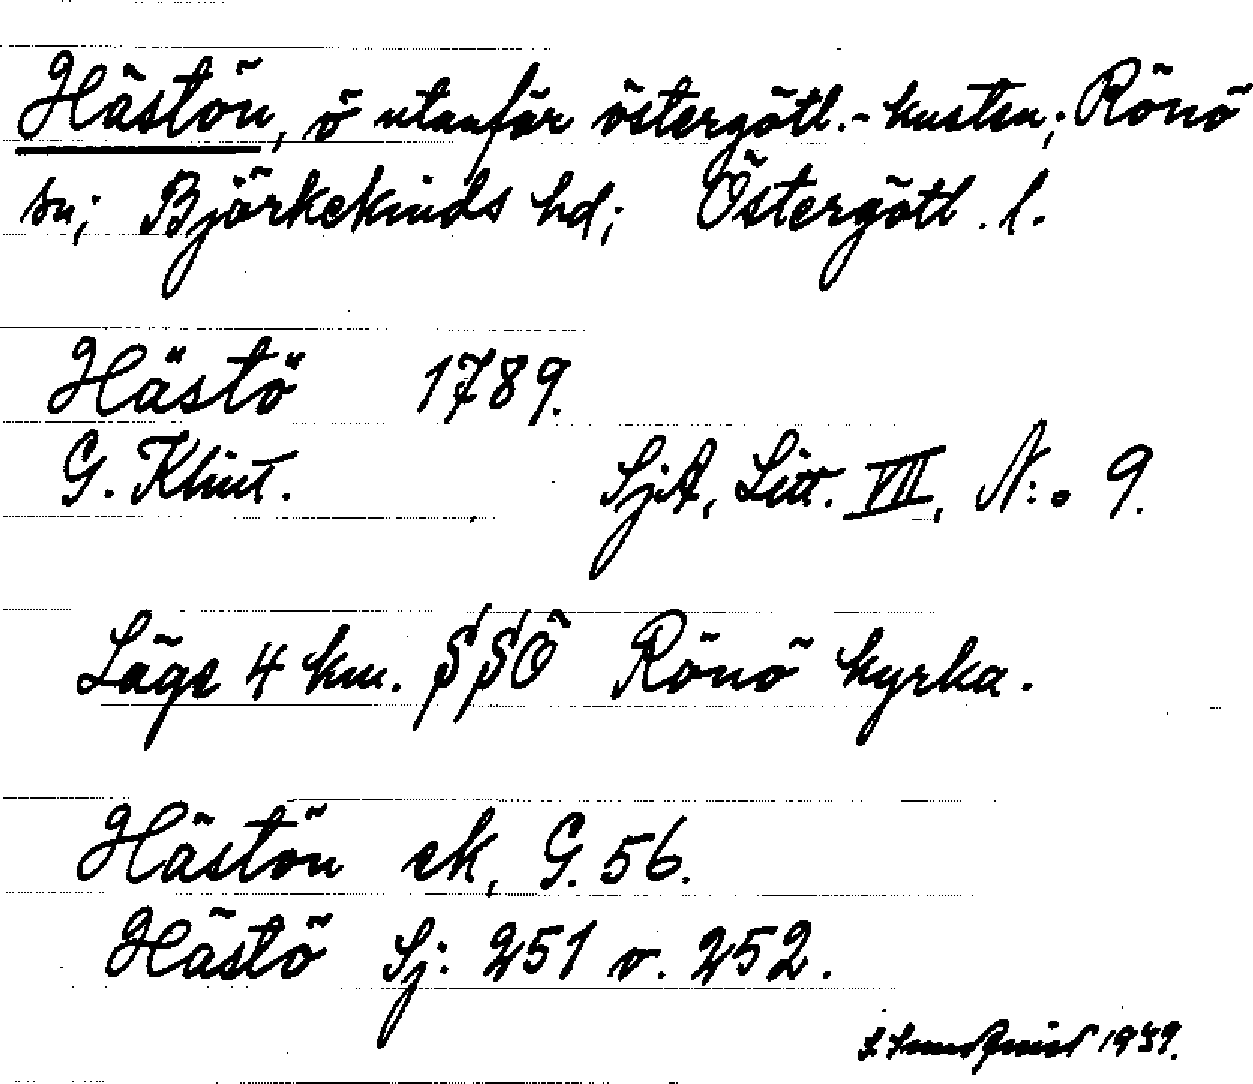 Hästön, ö utanför östergötl.-kusten; Rönö
sn; Björkekinds hd; Östergötl. l.
Hästö 1789.
G. Klint. SjA, Litt. VII, N:o 9.
Läge 4 km. SSÖ Rönö kyrka.
Hästön ek, G. 56.
Hästö Sj: 251 o. 252.
1939.